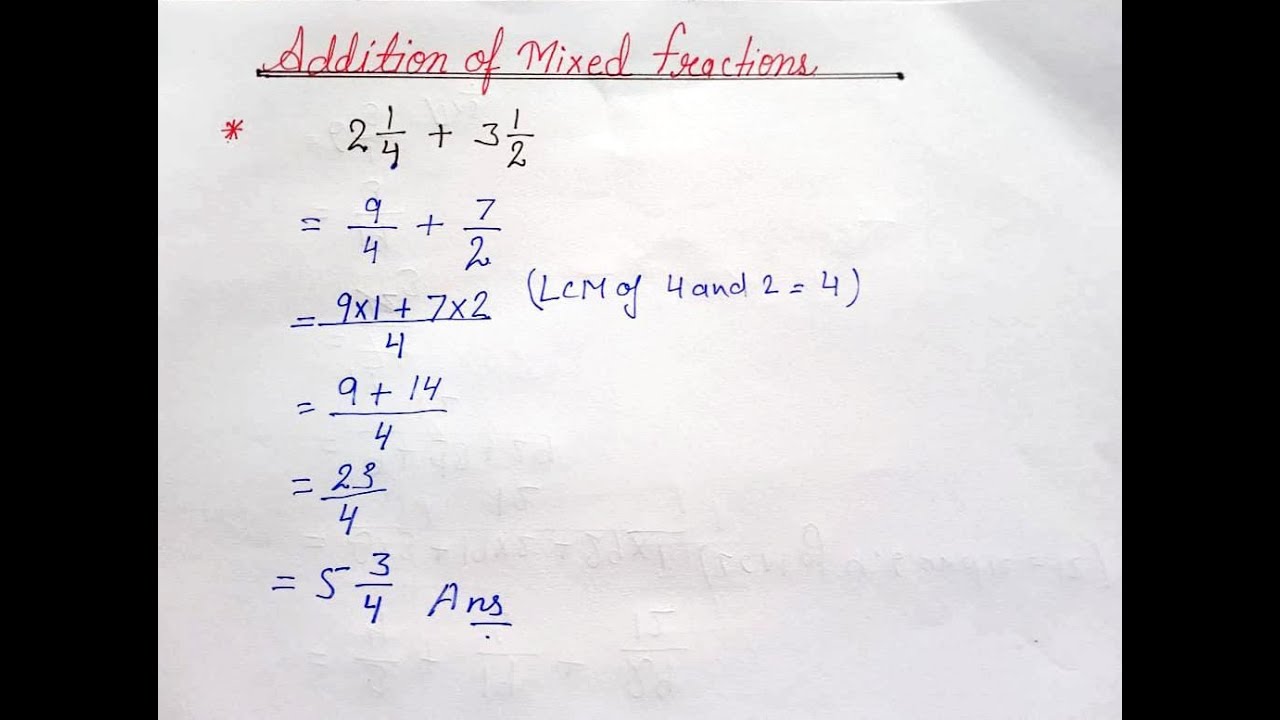 Addition of Mixed fractions
* 2 1/4 + 3 1/2
= 9/4 + 7/2
= 9x1 + 7x2 / 4 (LCM of 4 and 2 = 4)
= 9 + 14 / 4
= 23/4
= 5 3/4 Ans